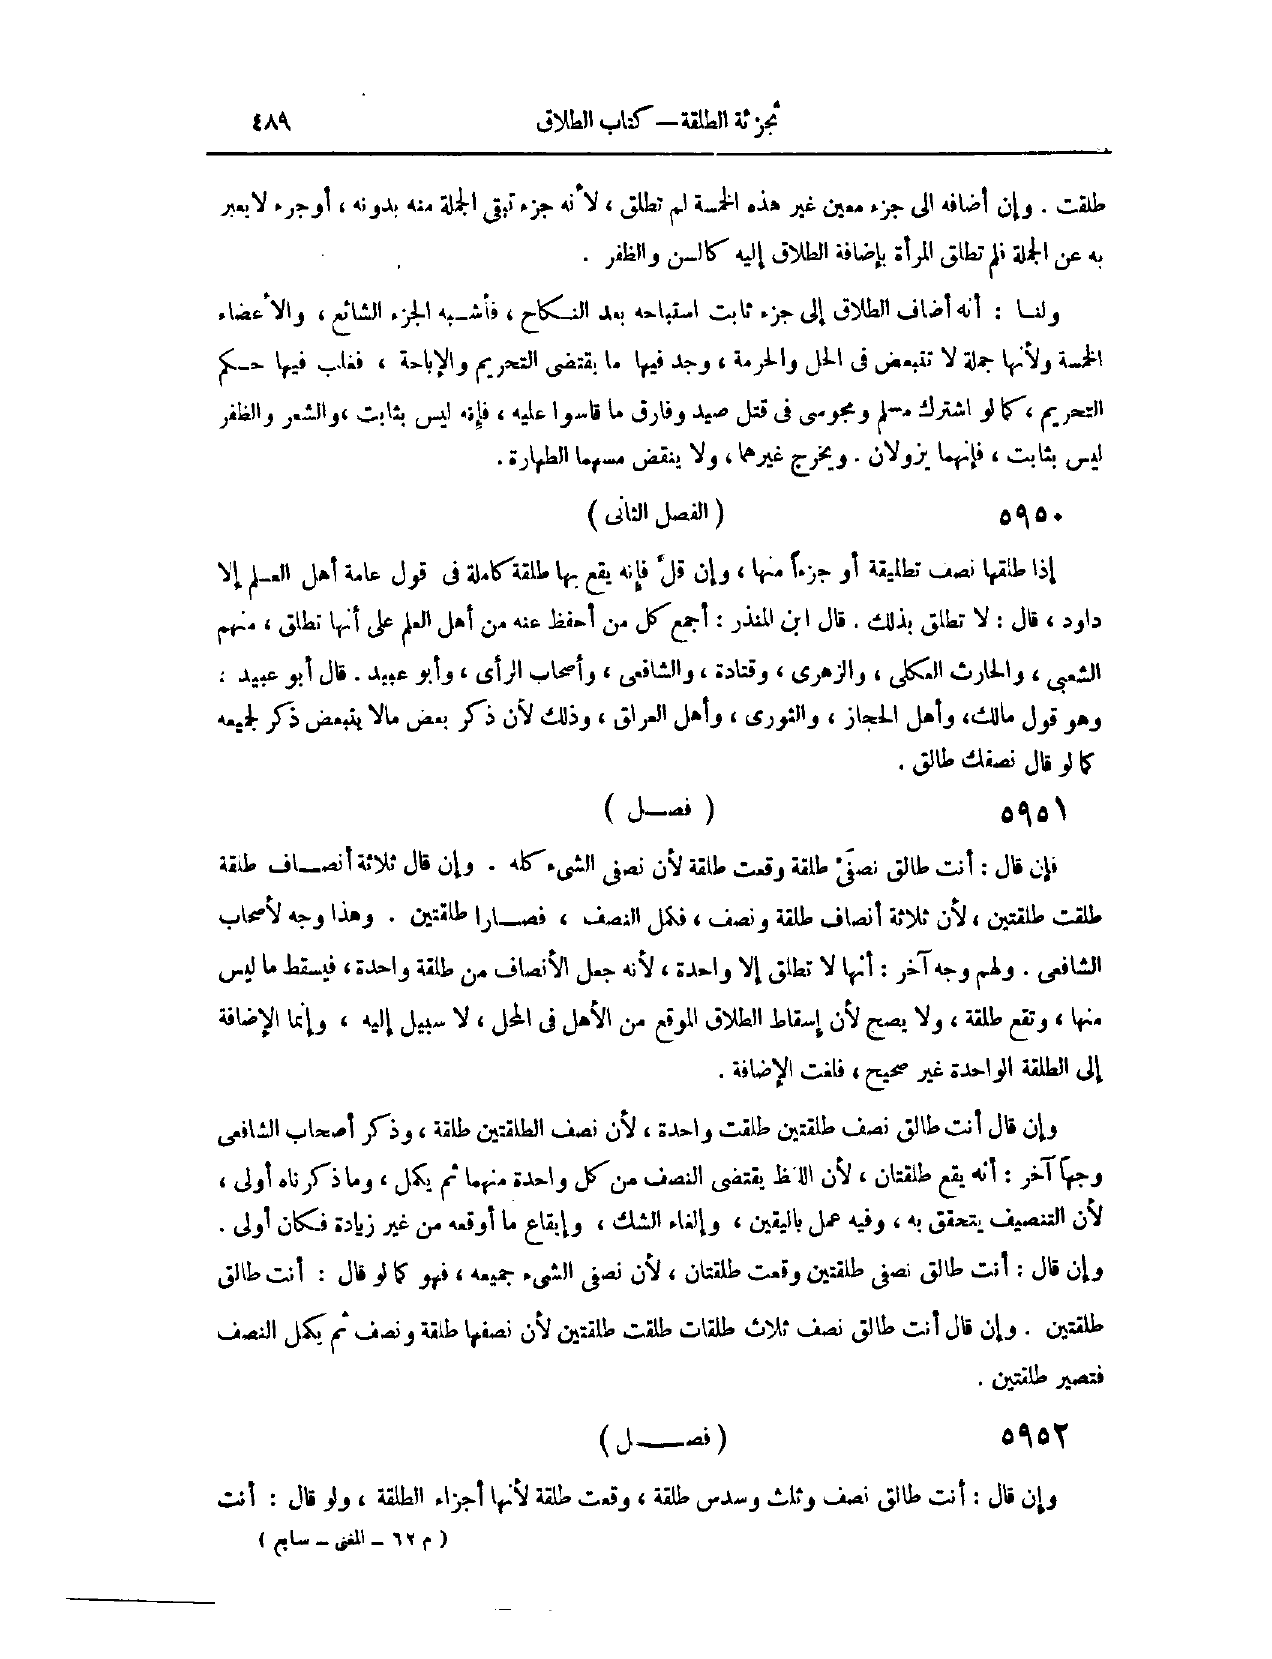 تجزئة الطلقة — كتاب الطلاق ٤٨٩
طلقت . وإن أضافه الى جزء معين غير هذه الخمسة لم تطلق ، لأنه جزء تبقى الجملة منه بدونه ، أوجزء لايعبر
به عن الجملة فلم تطلق المرأة بإضافة الطلاق إليه كالسن والظفر .
ولنا : أنه أضاف الطلاق إلى جزء ثابت استباحه بعد النكاح ، فأشبه الجزء الشائع ، والأعضاء
الخمسة ولأنها جملة لا تتبعض فى الحل والحرمة ، وجد فيها ما يقتضى التحريم والإباحة ، فغلب فيها حكم
التحريم ، كما لو اشترك مسلم ومجوسى فى قتل صيد وفارق ما قاسوا عليه ، فإنه ليس بثابت ،والشعر والظفر
ليس بثابت ، فإنهما يزولان . ويخرج غيرهما ، ولا ينقض مسهما الطهارة .
٥٩٥٠ ( الفصل الثانى )
إذا طلقها نصف تطليقة أو جزءاً منها ، وإن قلّ فإنه يقع بها طلقة كاملة فى قول عامة أهل العلم إلا
داود ، قال : لا تطلق بذلك . قال ابن المنذر : أجمع كل من أحفظ عنه من أهل العلم على أنها تطلق ، منهم
الشعبى ، والحارث العكلى ، والزهرى ، وقتادة ، والشافعى ، وأصحاب الرأى ، وأبو عبيد . قال أبو عبيد :
وهو قول مالك، وأهل الحجاز ، والثورى ، وأهل العراق ، وذلك لأن ذكر بعض مالا يتبعض ذكر لجميعه
كما لو قال نصفك طالق .
٥٩٥١ ( فصل )
فإن قال : أنت طالق نصفَىْ طلقة وقعت طلقة لأن نصفى الشىء كله . وإن قال ثلاثة أنصاف طلقة
طلقت طلقتين ، لأن ثلاثة أنصاف طلقة ونصف ، فكمل النصف ، فصارا طلقتين . وهذا وجه لأصحاب
الشافعى . ولهم وجه آخر : أنها لا تطلق إلا واحدة ، لأنه جعل الأنصاف من طلقة واحدة ، فيسقط ما ليس
منها ، وتقع طلقة ، ولا يصح لأن إسقاط الطلاق الموقع من الأهل فى المحل ، لا سبيل إليه ، وإنما الإضافة
إلى الطلقة الواحدة غير صحيح ، فلغت الإضافة .
وإن قال أنت طالق نصف طلقتين طلقت واحدة ، لأن نصف الطلقتين طلقة ، وذكر أصحاب الشافعى
وجهاً آخر : أنه يقع طلقتان ، لأن اللفظ يقتضى النصف من كل واحدة منهما ثم يكمل ، وماذكرناه أولى ،
لأن التنصيف يتحقق به ، وفيه عمل باليقين ، وإلغاء الشك ، وإيقاع ما أوقعه من غير زيادة فكان أولى .
وإن قال : أنت طالق نصفى طلقتين وقعت طلقتان ، لأن نصفى الشىء جميعه ، فهو كما لو قال : أنت طالق
طلقتين . وإن قال أنت طالق نصف ثلاث طلقات طلقت طلقتين لأن نصفها طلقة ونصف ثم يكمل النصف
فتصير طلقتين .
٥٩٥٢ ( فصل )
وإن قال : أنت طالق نصف وثلث وسدس طلقة ، وقعت طلقة لأنها أجزاء الطلقة ، ولو قال : أنت
( م ٦٢ – المغنى – سابع )